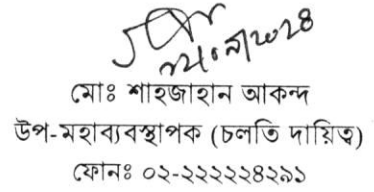 মোঃ শাহজাহান আকন্দ
উপ-মহাব্যবস্থাপক (চলতি দায়িত্ব)
ফোনঃ ০২-২২২২২৪২৯১